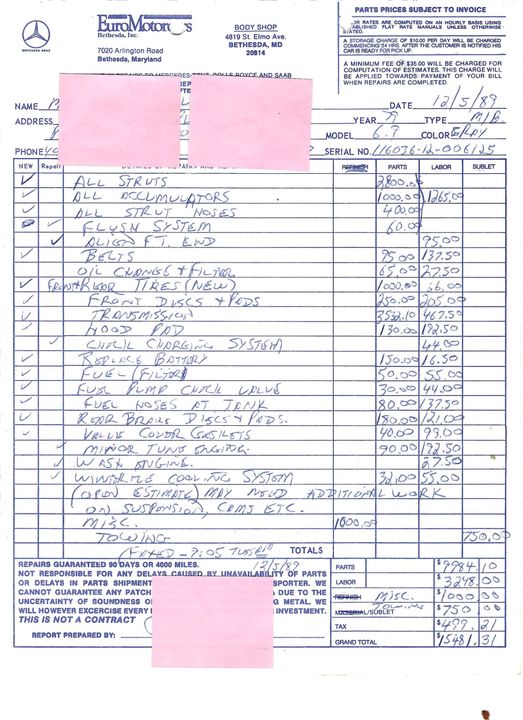 EUROMOTORCARS
Bethesda, Inc.
MERCEDES-BENZ
7020 Arlington Road
Bethesda, Maryland
BODY SHOP
4819 St. Elmo Ave.
BETHESDA, MD
20814
PARTS PRICES SUBJECT TO INVOICE
RATES ARE COMPUTED ON AN HOURLY BASIS USING
FLAT RATE MANUALS UNLESS OTHERWISE
STATED.
A STORAGE CHARGE OF $10.00 PER DAY WILL BE CHARGED
COMMENCING 24 HRS. AFTER THE CUSTOMER IS NOTIFIED HIS
CAR IS READY FOR PICK UP.
A MINIMUM FEE OF $35.00 WILL BE CHARGED FOR
COMPUTATION OF ESTIMATES. THIS CHARGE WILL
BE APPLIED TOWARDS PAYMENT OF YOUR BILL
WHEN REPAIRS ARE COMPLETED.
NAME DATE 12/5/89
ADDRESS YEAR 79 TYPE M/B
MODEL 6.9 COLOR
PHONE SERIAL NO. 116036-12-006125
NEW Repair REFINISH PARTS LABOR SUBLET
✓ ALL STRUTS 2,800.00
✓ ALL ACCUMULATORS 1000.00 1265.00
✓ ALL STRUT HOSES 400.00
✓ FLUSH SYSTEM 60.00
✓ ALIGN FT. END 95.00
✓ BELTS 95.00 137.50
OIL CHANGE + FILTER 65.00 27.50
✓ FRONT + REAR TIRES (NEW) 1000.00 66.00
✓ FRONT DISCS + PADS 250.00 205.00
✓ TRANSMISSION 3532.10 467.50
✓ HOOD PAD 130.00 192.50
✓ CHECK CHARGING SYSTEM 44.00
✓ REPLACE BATTERY 150.00 16.50
✓ FUEL (FILTER) 50.00 55.00
✓ FUEL PUMP CHECK VALVE 30.00 44.00
✓ FUEL HOSES AT TANK 80.00 137.50
✓ REAR BRAKE DISCS + PADS. 180.00 121.00
✓ VALVE COVER GASKETS 40.00 99.00
✓ MINOR TUNE ENGINE. 90.00 192.50
✓ WASH ENGINE. 27.50
✓ WINTERIZE COOLING SYSTEM 32.00 55.00
(OPEN ESTIMATE) MAY NEED ADDITIONAL WORK
ON SUSPENSION, ETC.
MISC. 1000.00
TOWING 750.00
(FAXED - 9:05 TUES) TOTALS
12/5/89
REPAIRS GUARANTEED 90 DAYS OR 4000 MILES.
NOT RESPONSIBLE FOR ANY DELAYS CAUSED BY UNAVAILABILITY OF PARTS
OR DELAYS IN PARTS SHIPMENT SPORTER. WE
CANNOT GUARANTEE ANY PATCH DUE TO THE
UNCERTAINTY OF SOUNDNESS O NG METAL. WE
WILL HOWEVER EXCERCISE EVERY INVESTMENT.
THIS IS NOT A CONTRACT
REPORT PREPARED BY:
PARTS $9984.10
LABOR $3248.00
REFINISH MISC. $1000.00
MATERIAL/SUBLET TOWING $750.00
TAX $499.21
GRAND TOTAL $15481.31